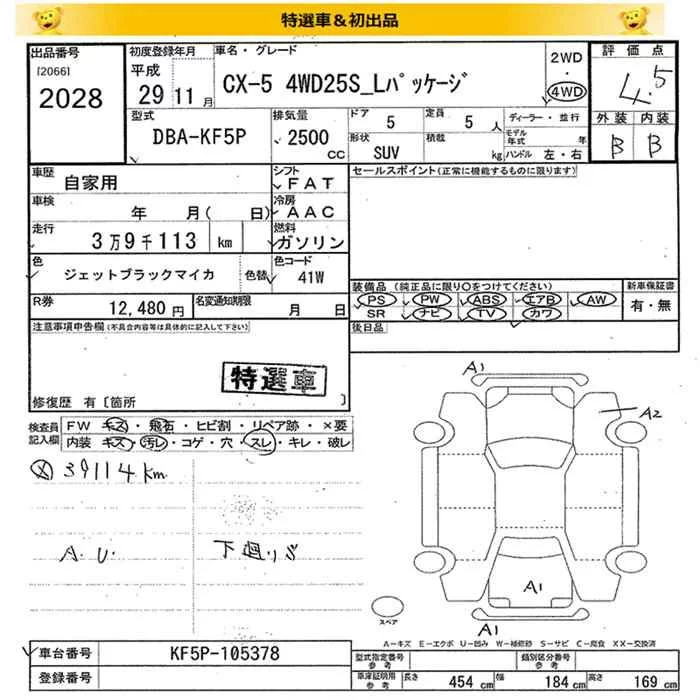 特選車＆初出品
出品番号 初度登録年月 車名・グレード 2WD 評価点
[2066] 平成 ・
2028 29 11月 CX-5 4WD25S_Lパッケージ 4WD 4.5
型式 排気量 ドア 定員 ディーラー・並行 外装 内装
DBA-KF5P 2500 5 5人 モデル年式 年 B B
CC 形状 SUV 積載 kg ハンドル 左・右
車歴 自家用 シフト FAT セールスポイント(正常に機能するものに限ります)
車検 年 月( 日) 冷房 AAC
走行 3万9千113 km 燃料 ガソリン
色 ジェットブラックマイカ 色替 色コード 41W
装備品 (純正品に限り○をつけてください) 新車保証書
PS PW ABS エアB AW 有・無
SR ナビ TV カワ
R券 12,480円 名変通知期限 月 日
後日品
注意事項申告欄(不具合内容等は具体的に記入して下さい)
特選車
修復歴 有〔箇所 〕
検査員記入欄 FW キズ・飛石・ヒビ割・リペア跡・×要
内装 キズ・汚レ・コゲ・穴・スレ・キレ・破レ
39114km
A.U. 下廻りS
A1
A2
A1
A1
スペア
A-キズ E-エクボ U-凹み W-補修跡 S-サビ C-腐食 XX-交換済
車台番号 KF5P-105378 型式指定番号 参考 類別区分番号 参考
登録番号 車庫証明用 参考 長さ 454cm 幅 184cm 高さ 169cm